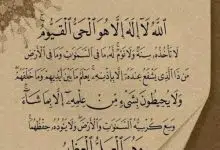 اللَّهُ لَا إِلَٰهَ إِلَّا هُوَ الْحَيُّ الْقَيُّومُ
لَا تَأْخُذُهُ سِنَةٌ وَلَا نَوْمٌ لَهُ مَا فِي السَّمَوَاتِ وَمَا فِي الْأَرْضِ
مَنْ ذَا الَّذِي يَشْفَعُ عِنْدَهُ إِلَّا بِإِذْنِهِ يَعْلَمُ مَا بَيْنَ أَيْدِيهِمْ وَمَا خَلْفَهُمْ
وَلَا يُحِيطُونَ بِشَيْءٍ مِنْ عِلْمِهِ إِلَّا بِمَا شَاءَ
وَسِعَ كُرْسِيُّهُ السَّمَوَاتِ وَالْأَرْضَ وَلَا يَئُودُهُ حِفْظُهُمَا
وَهُوَ الْعَلِيُّ الْعَظِيمُ